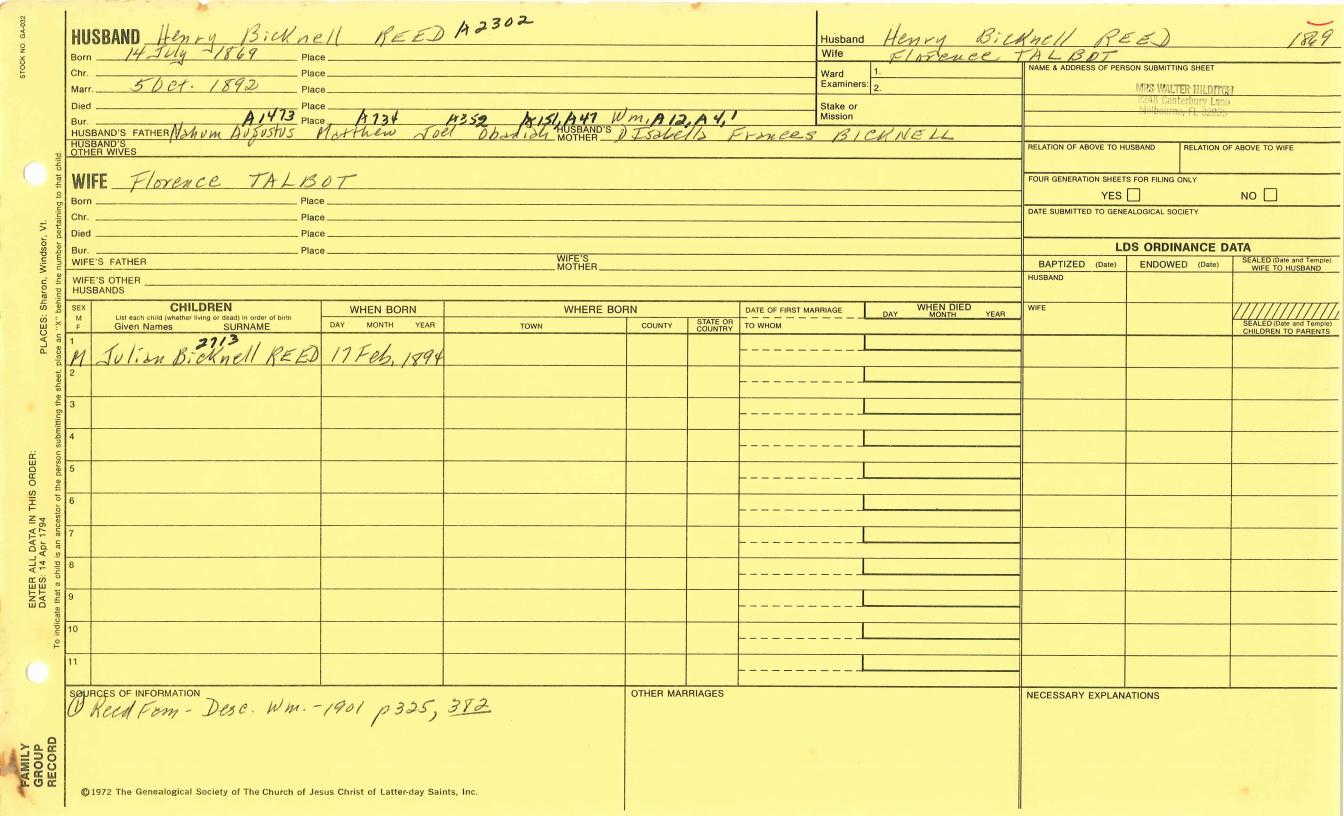 STOCK NO. GA-032
HUSBAND Henry Bicknell REED A2302
Born 14 July 1869 Place
Chr. Place
Marr. 5 Oct. 1892 Place
Died Place
Bur. Place
A1473 A734 A352 A151, A47 Wm, A12, A4, 1
HUSBAND'S FATHER Nahum Augustus Matthew Joel Obadiah HUSBAND'S MOTHER Isabella Frances BICKNELL
HUSBAND'S OTHER WIVES
Husband Henry Bicknell REED 1869
Wife Florence TALBOT
Ward Examiners: 1. 2.
Stake or Mission
NAME & ADDRESS OF PERSON SUBMITTING SHEET
MRS WALTER HILDITCH
Canterbury Lane
Melbourne, FL
RELATION OF ABOVE TO HUSBAND RELATION OF ABOVE TO WIFE
FOUR GENERATION SHEETS FOR FILING ONLY
YES NO
DATE SUBMITTED TO GENEALOGICAL SOCIETY
WIFE Florence TALBOT
Born Place
Chr. Place
Died Place
Bur. Place
WIFE'S FATHER WIFE'S MOTHER
WIFE'S OTHER HUSBANDS
LDS ORDINANCE DATA
BAPTIZED (Date) ENDOWED (Date) SEALED (Date and Temple) WIFE TO HUSBAND
HUSBAND
WIFE
SEALED (Date and Temple) CHILDREN TO PARENTS
SEX M F
CHILDREN
List each child (whether living or dead) in order of birth
Given Names SURNAME
WHEN BORN
DAY MONTH YEAR
WHERE BORN
TOWN COUNTY STATE OR COUNTRY
DATE OF FIRST MARRIAGE
TO WHOM
WHEN DIED
DAY MONTH YEAR
2713
1 M Julian Bicknell REED 17 Feb, 1894
2
3
4
5
6
7
8
9
10
11
SOURCES OF INFORMATION
① Reed Fam - Desc. Wm. - 1901 p325, 382
OTHER MARRIAGES
NECESSARY EXPLANATIONS
©1972 The Genealogical Society of The Church of Jesus Christ of Latter-day Saints, Inc.
FAMILY GROUP RECORD
ENTER ALL DATA IN THIS ORDER:
DATES: 14 Apr 1794 PLACES: Sharon, Windsor, Vt.
To indicate that a child is an ancestor of the person submitting the sheet, place an "X" behind the number pertaining to that child.